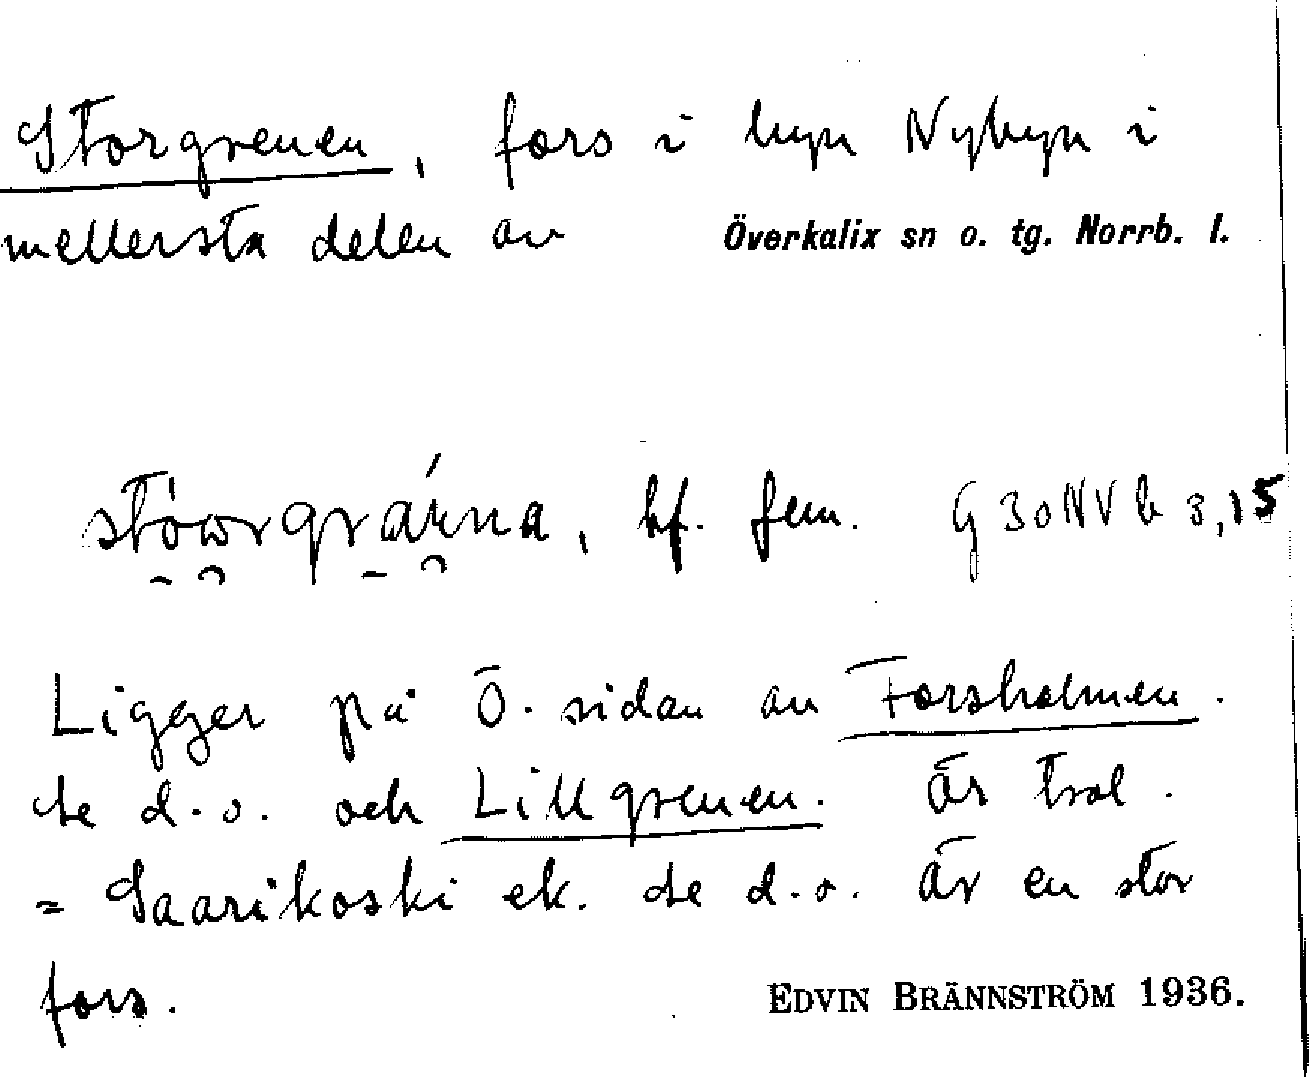 Storgrenen, fors i byn Nybyn i
mellersta delen av Överkalix sn o. tg. Norrb. l.
bf. fem. G 30 NV b 3,15
Ligger på Ö. sidan av Forsholmen.
Se d.o. och Lillgrenen. Är trol.
= Saarikoski ek. se d.o. Är en stor
fors. EDVIN BRÄNNSTRÖM 1936.